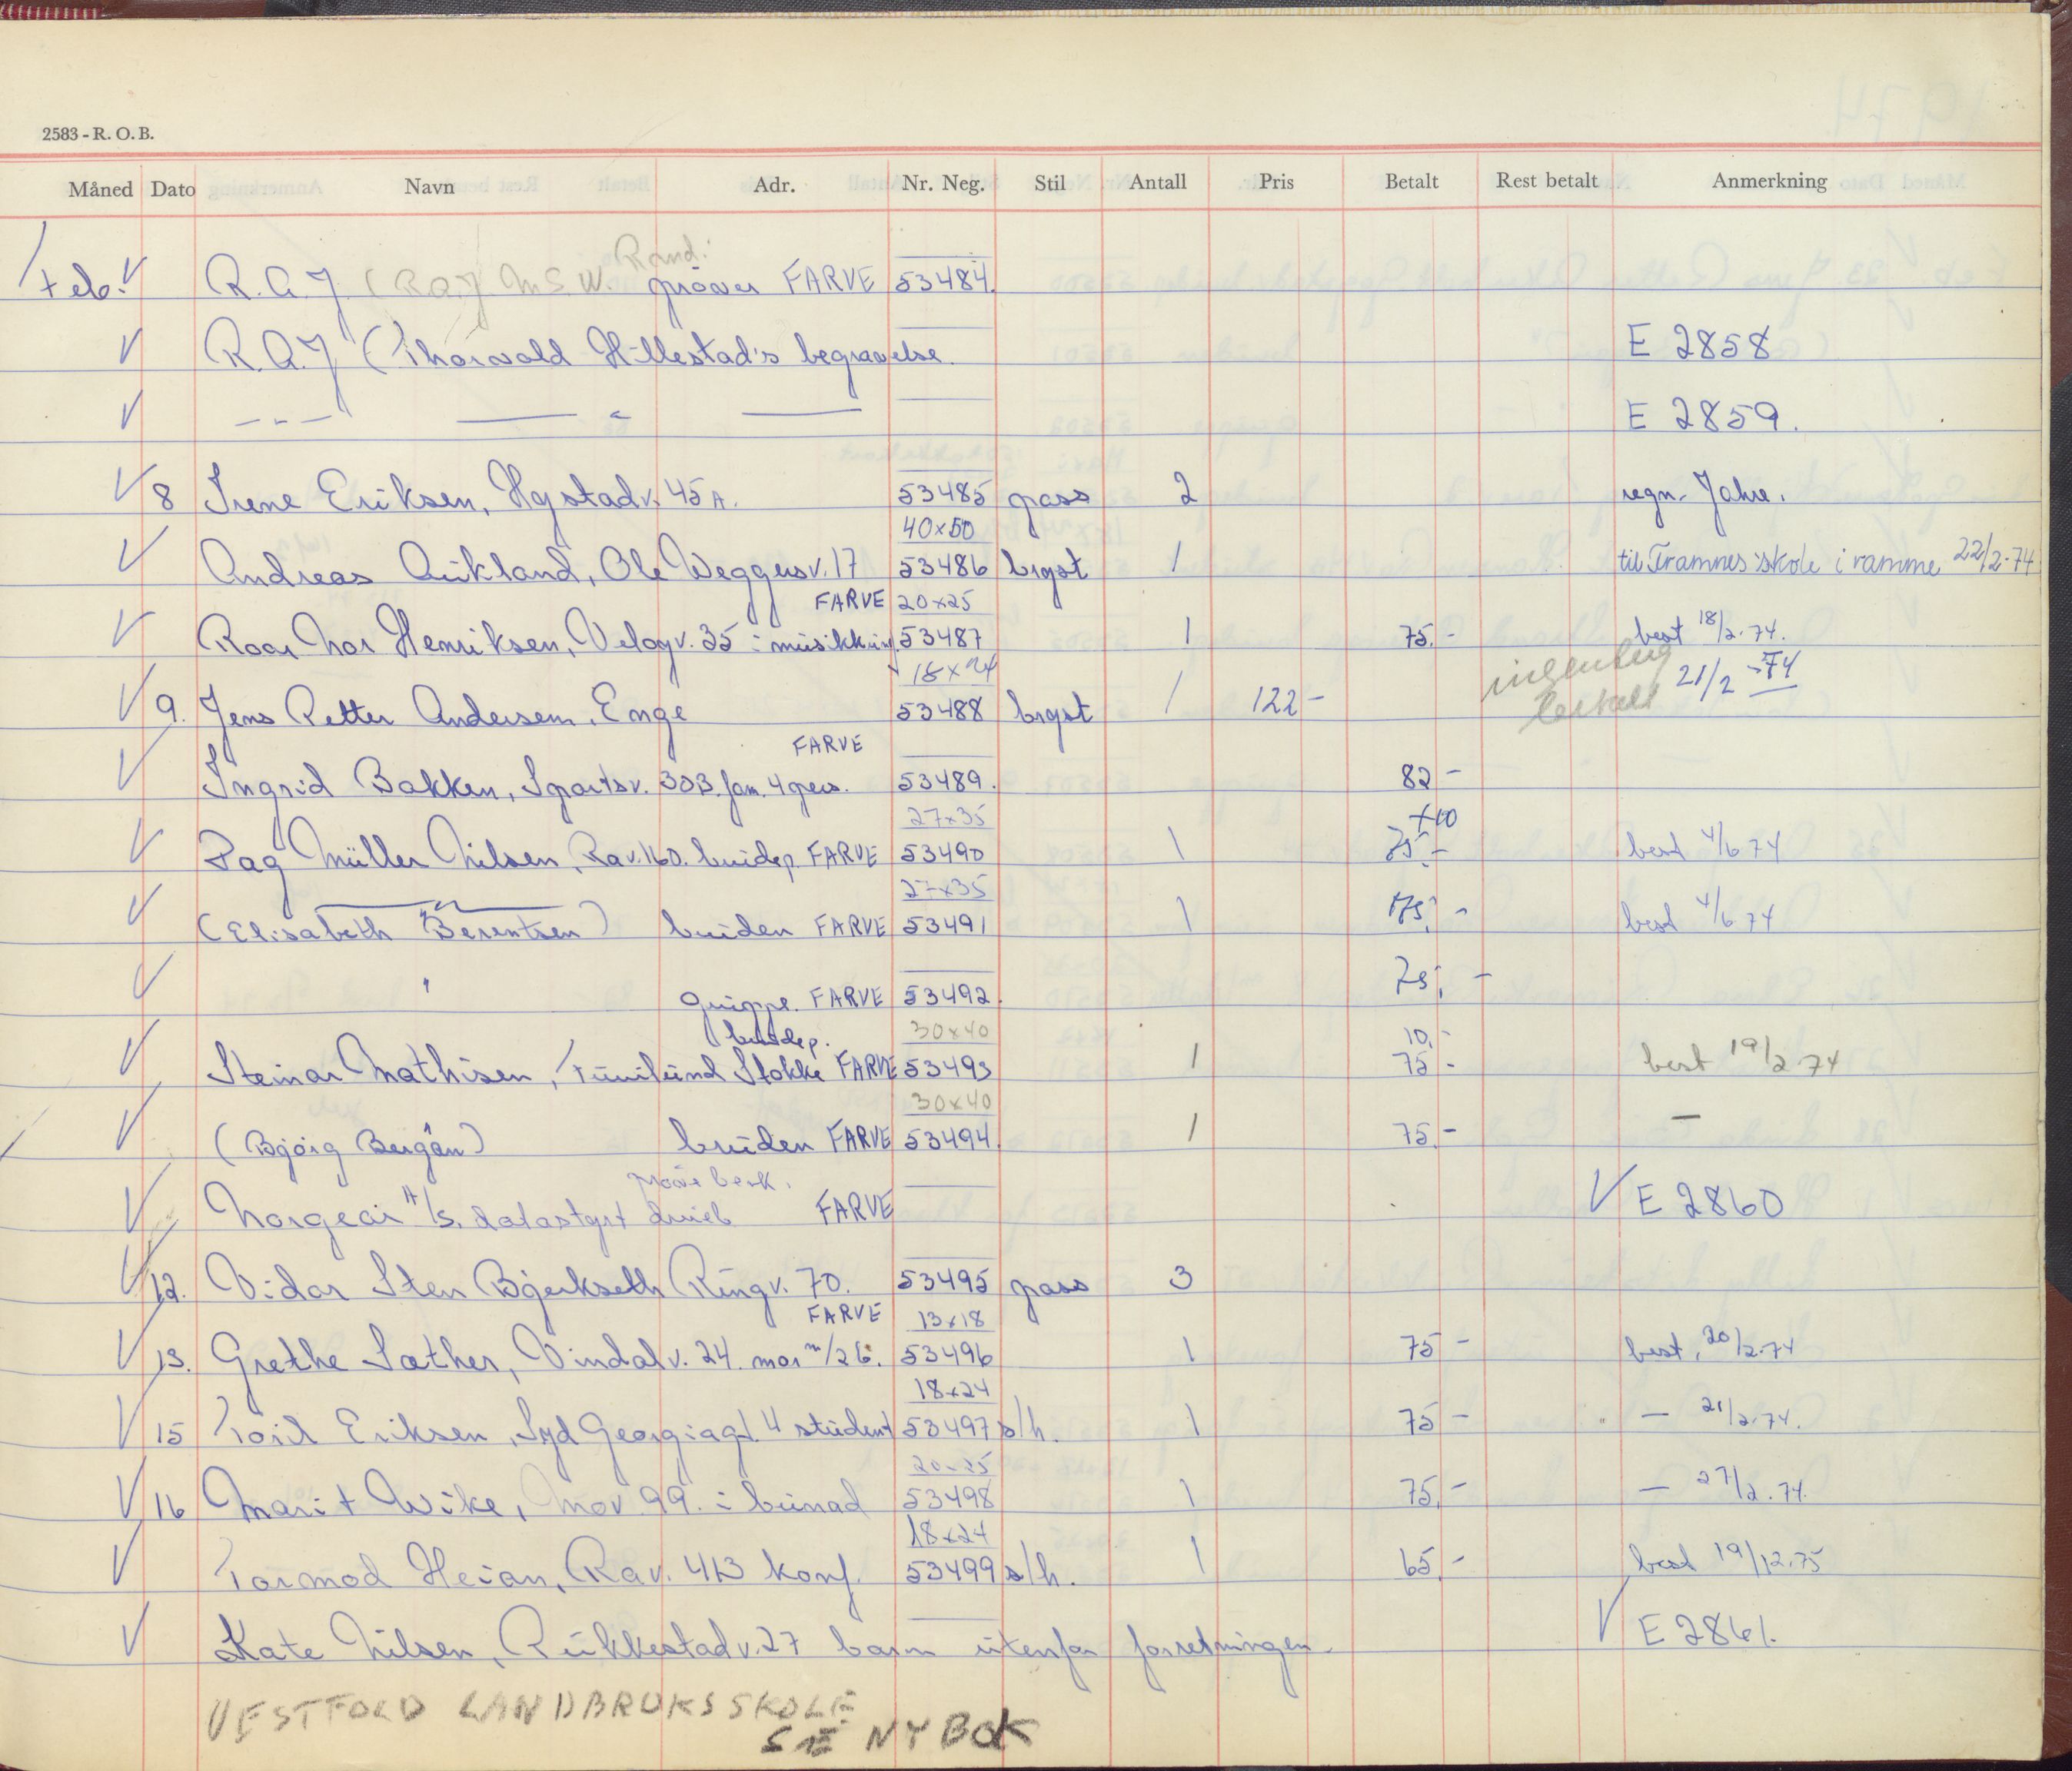 2583 - R. O. B.
Måned Dato Navn Adr. Nr. Neg. Stil Antall Pris Betalt Rest betalt Anmerkning
Rand.
Feb. R.A.J (R.A.J M.S.W. prøver FARVE 53484.
R.A.J (Thorvald Hillestad's begravelse. E 2858
E 2859.
8 Irene Eriksen, Hystadv. 45A. 53485 pass 2 regn. Jahre.
40x50
Andreas Aukland, Ole Weggersv. 17 53486 bryst 1 til Framnes skole i ramme 22/2-74
FARVE 20x25
Roar Mor Henriksen, Velogv. 35 i musikkuni 53487 1 75.- best 18/2.74.
18x24 21/2 -74
9. Jens Petter Andersen, Enge 53488 bryst 1 122-
FARVE
Ingrid Bakken, Sportsv. 30B. fam. 4 pers. 53489. 82-
27x35 +10
Dag Müller Nilsen, Rav. 160. brudep. FARVE 53490 1 75.- best 4/6 74
27x35
(Elisabeth Berentsen) bruden FARVE 53491 1 75.- best 4/6 74
" gruppe. FARVE 53492. 75,-
brudep. 30x40 10,-
Steinar Mathisen, Furulund Stokke FARVE 53493 1 75- best 19/2 74
30x40
(Bjørg Bergan) bruden FARVE 53494. 1 75.- —
prøve besk.
Norgear A/S. datastyrt FARVE E 2860
12. Vidar Sten Bjerkseth Ringv. 70. 53495 pass 3
FARVE 13x18
13. Grethe Sæther, Vindalv. 24. mor m/2 b. 53496 1 75- best, 20/2.74
18x24
15 Toril Eriksen, Syd Georgiagt. 4 student 53497 s/h. 1 75- — 21/2.74.
20x25
16 Marit Wike, Mov. 99. i bunad 53498 1 75.- — 27/2.74.
18x24
Tormod Heian, Rav. 413 konf. 53499 s/h. 1 65.- best 19/12.75
Kate Nilsen, Rukkestadv. 27 barn utenfor forretningen. E 2861.
VESTFOLD LANDBRUKSSKOLE
SE NY BOK